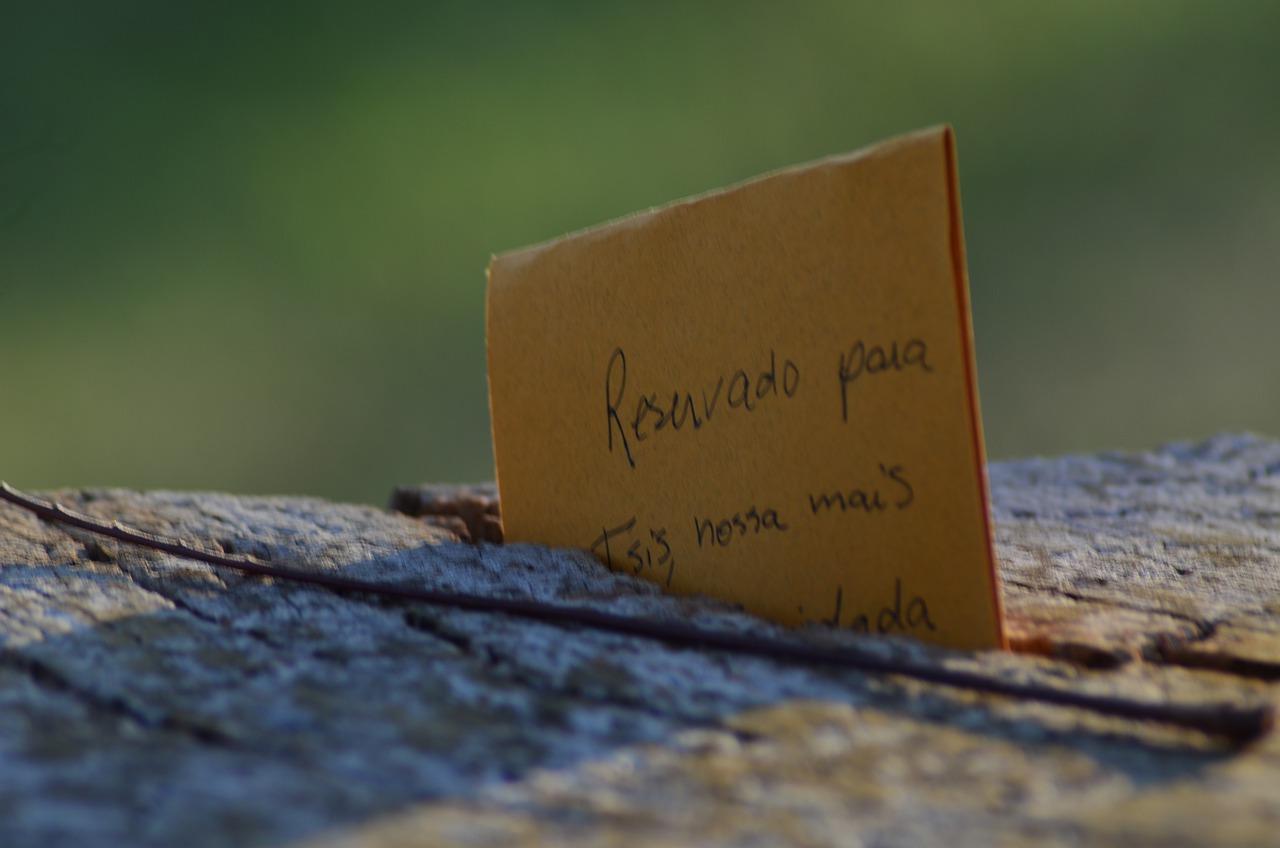 Reservado para
Isis, nossa mais